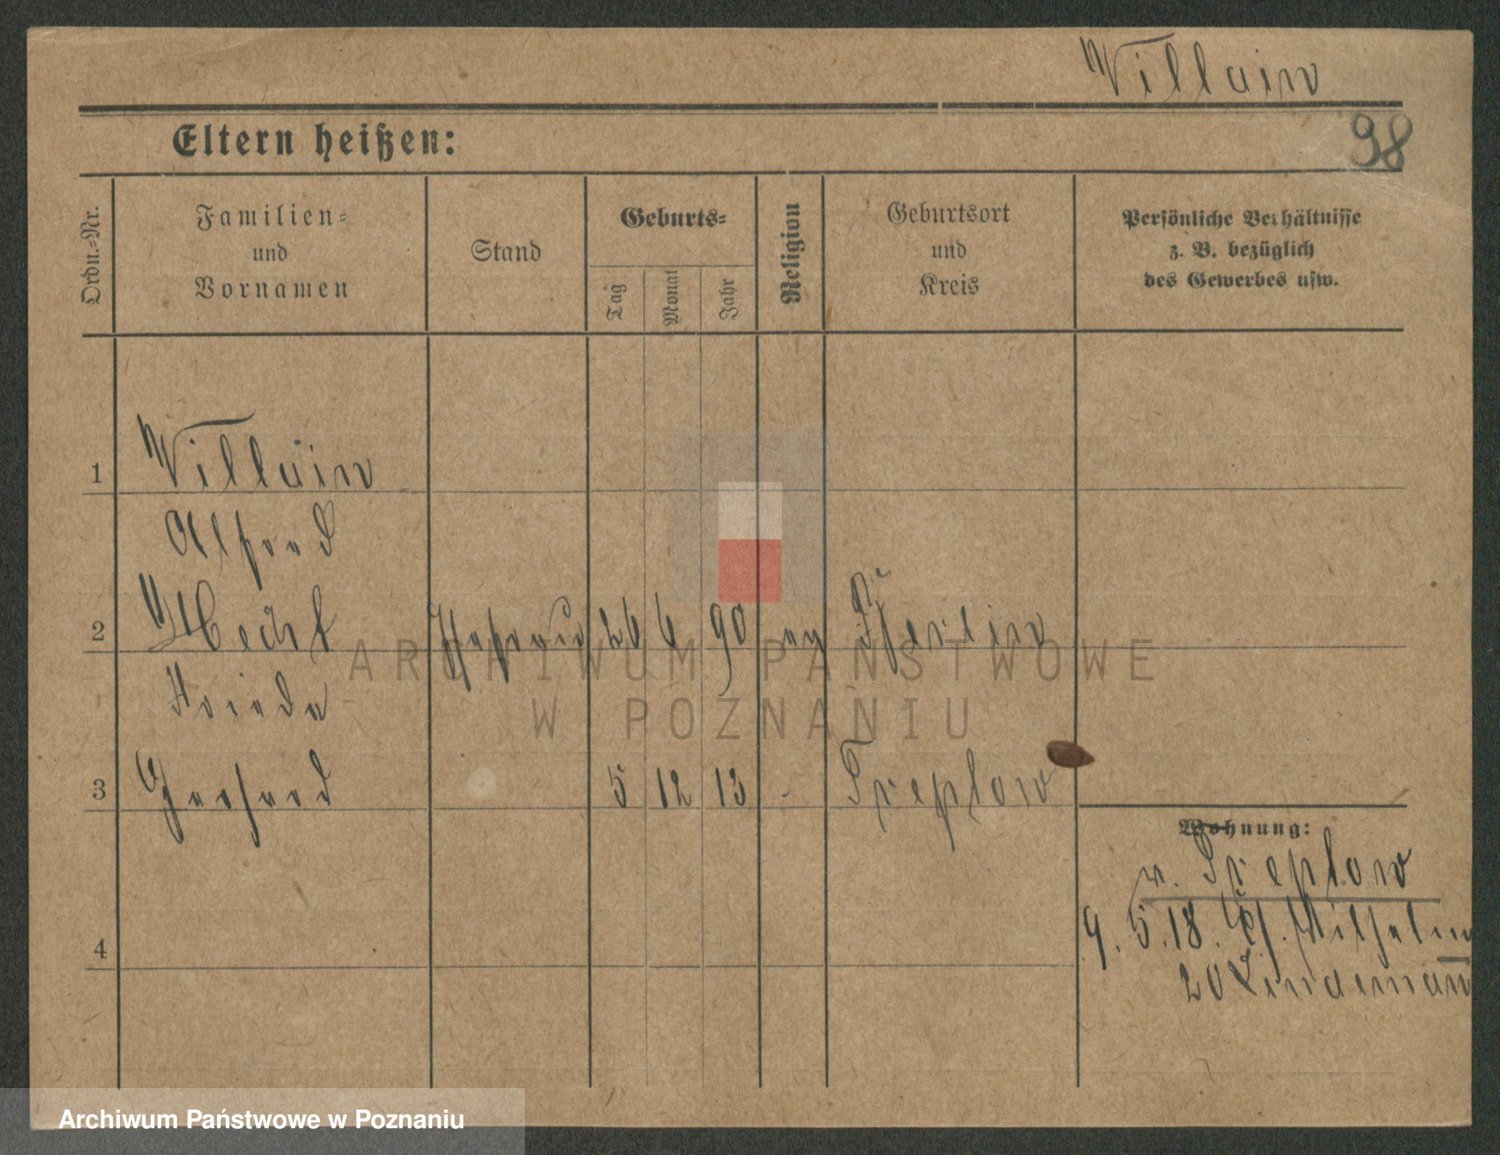 Villain
98
Eltern heißen:
Ordn.-Nr.
Familien-
und
Vornamen
Stand
Geburts-
Tag
Monat
Jahr
Religion
Geburtsort
und
Kreis
Persönliche Verhältnisse
z. B. bezüglich
des Gewerbes usw.
1 Villain
Alfred
2 Hecht Ehefrau 26 6 90 ev Berlin
Frieda
3 Gerhard 5 12 13 - Treptow
Wohnung:
v. Treptow
9. 5. 18. Wilhelm
20 Lindemann
4
ARCHIWUM PAŃSTWOWE
W POZNANIU
Archiwum Państwowe w Poznaniu